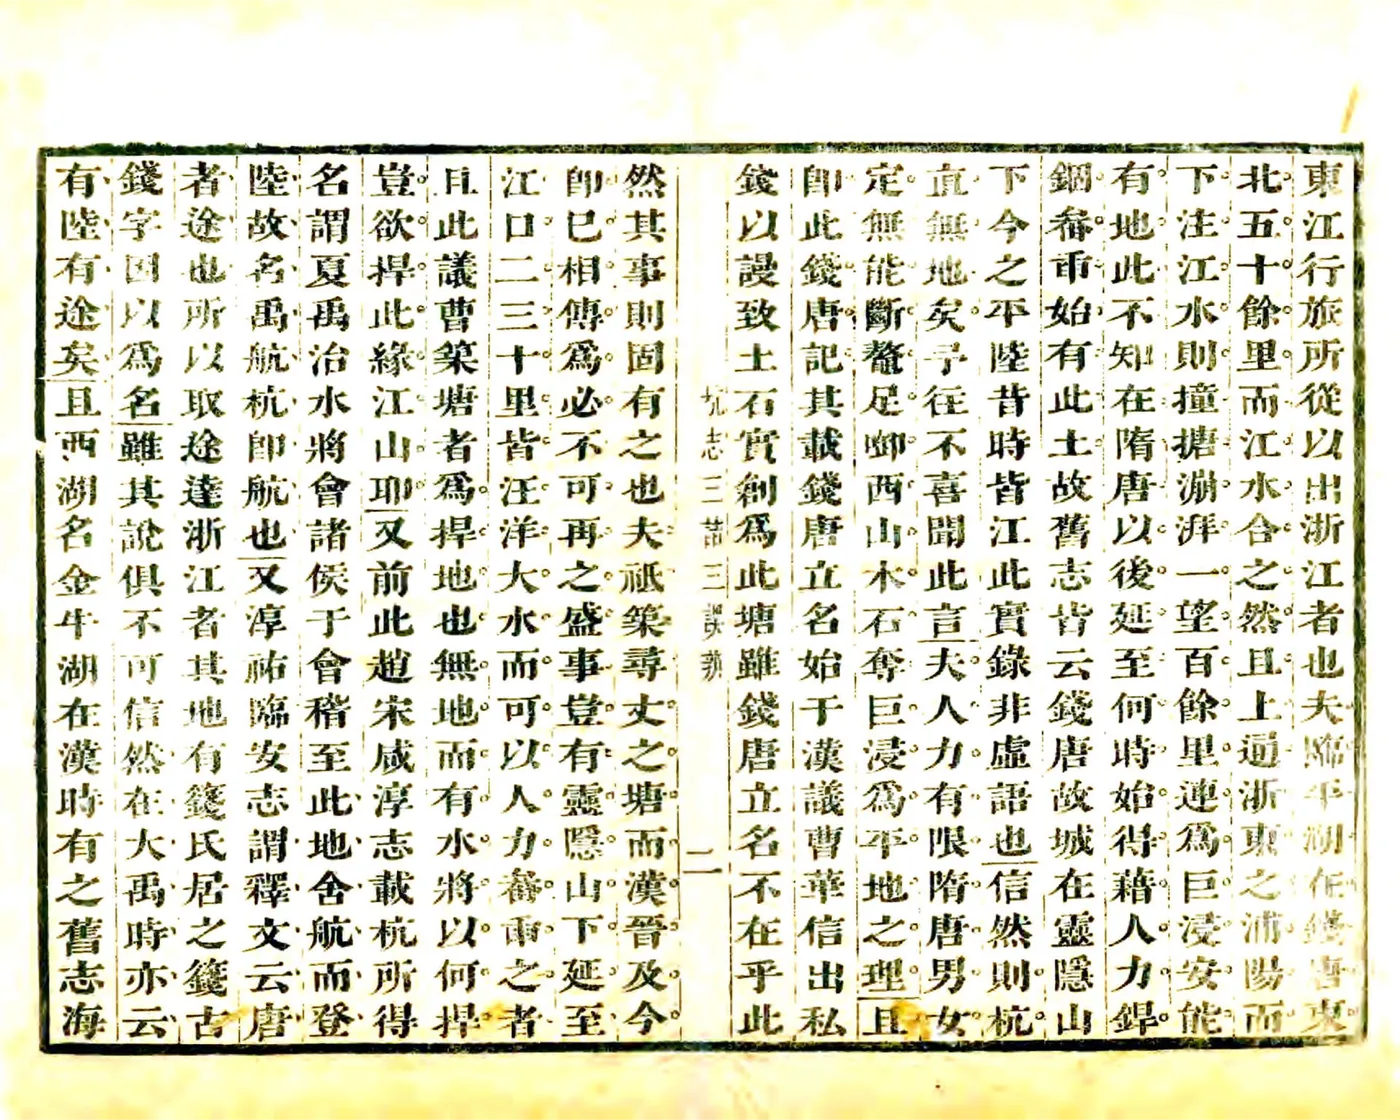 東江行旅所從以出浙江者也夫臨平湖在錢唐東
北五十餘里而江水合之然且上逼浙東之浦陽而
下注江水則撞搪漰湃一望百餘里連爲巨浸安能
有地此不知在隋唐以後延至何時始得藉人力銲
錮畚甬始有此土故舊志皆云錢唐故城在靈隱山
下今之平陸昔時皆江此實錄非虛語也信然則杭
直無地矣予往不喜聞此言夫人力有限隋唐男女
定無能斷鼇足啣西山木石奪巨浸爲平地之理且
卽此錢唐記其載錢唐立名始于漢議曹華信出私
錢以謾致土石實創爲此塘雖錢唐立名不在乎此
杭志三詰三誤辨
二
然其事則固有之也夫祗築尋丈之塘而漢晉及今
卽已相傳爲必不可再之盛事豈有靈隱山下延至
江口二三十里皆汪洋大水而可以人力畚甬之者
且此議曹築塘者爲捍地也無地而有水將以何捍
豈欲捍此緣江山耶又前此趙宋咸淳志載杭所得
名謂夏禹治水將會諸侯于會稽至此地舍航而登
陸故名禹航杭卽航也又淳祐臨安志謂釋文云唐
者途也所以取途達浙江者其地有籛氏居之籛古
錢字因以爲名雖其說俱不可信然在大禹時亦云
有陸有途矣且西湖名金牛湖在漢時有之舊志海